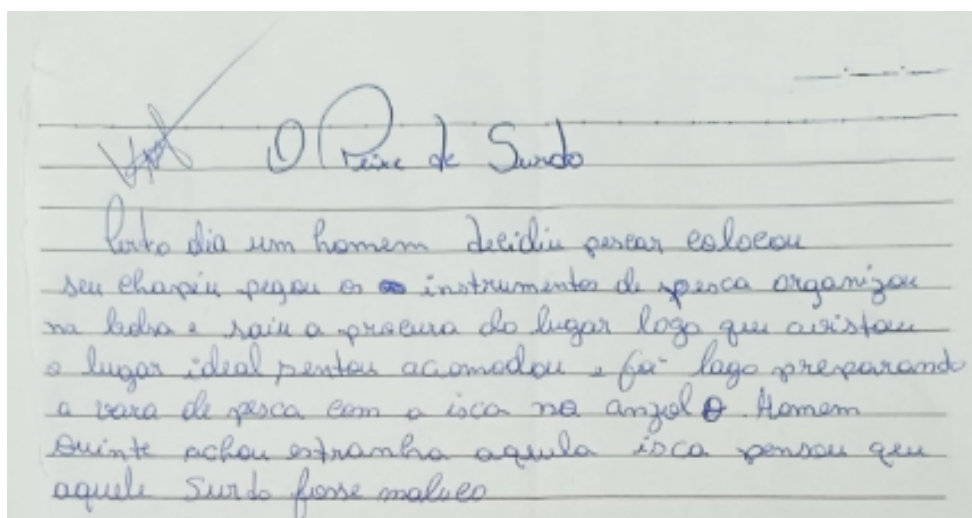 O Peixe de Surdo
Certo dia um homem decidiu pescar colocou
seu chapéu pegou os instrumentos de pesca organizou
na bolsa e saiu a procura do lugar logo que avistou
o lugar ideal sentou acomodou e foi logo preparando
a vara de pesca com a isca no anzol O Homem
ouinte achou estranha aquela isca pensou que
aquele Surdo fosse maluco